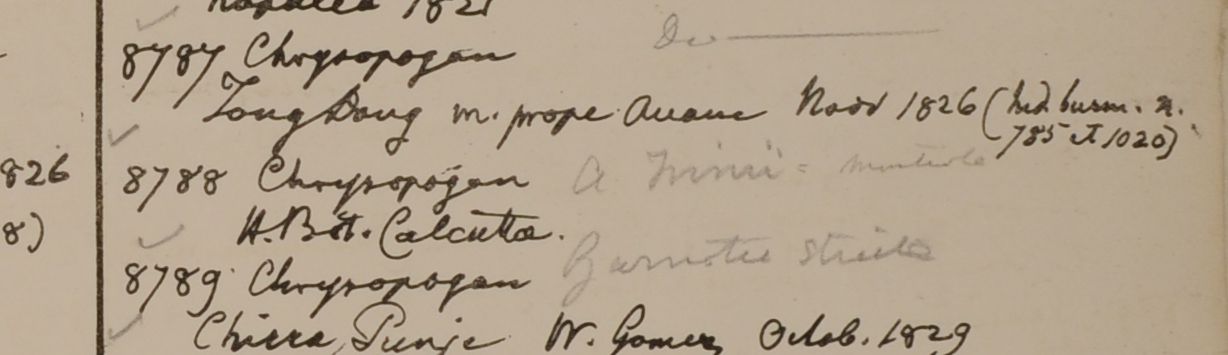 1821
8787 Chrysopogon Do
Tong Dong m. prope Avane Novr 1826 (hrd. burm. n.
785 et 1020)
826 8788 Chrysopogon A
8) H. Bot. Calcutta.
8789 Chrysopogon Garnotia stricta
Chirra Punje W. Gomez Octob. 1829